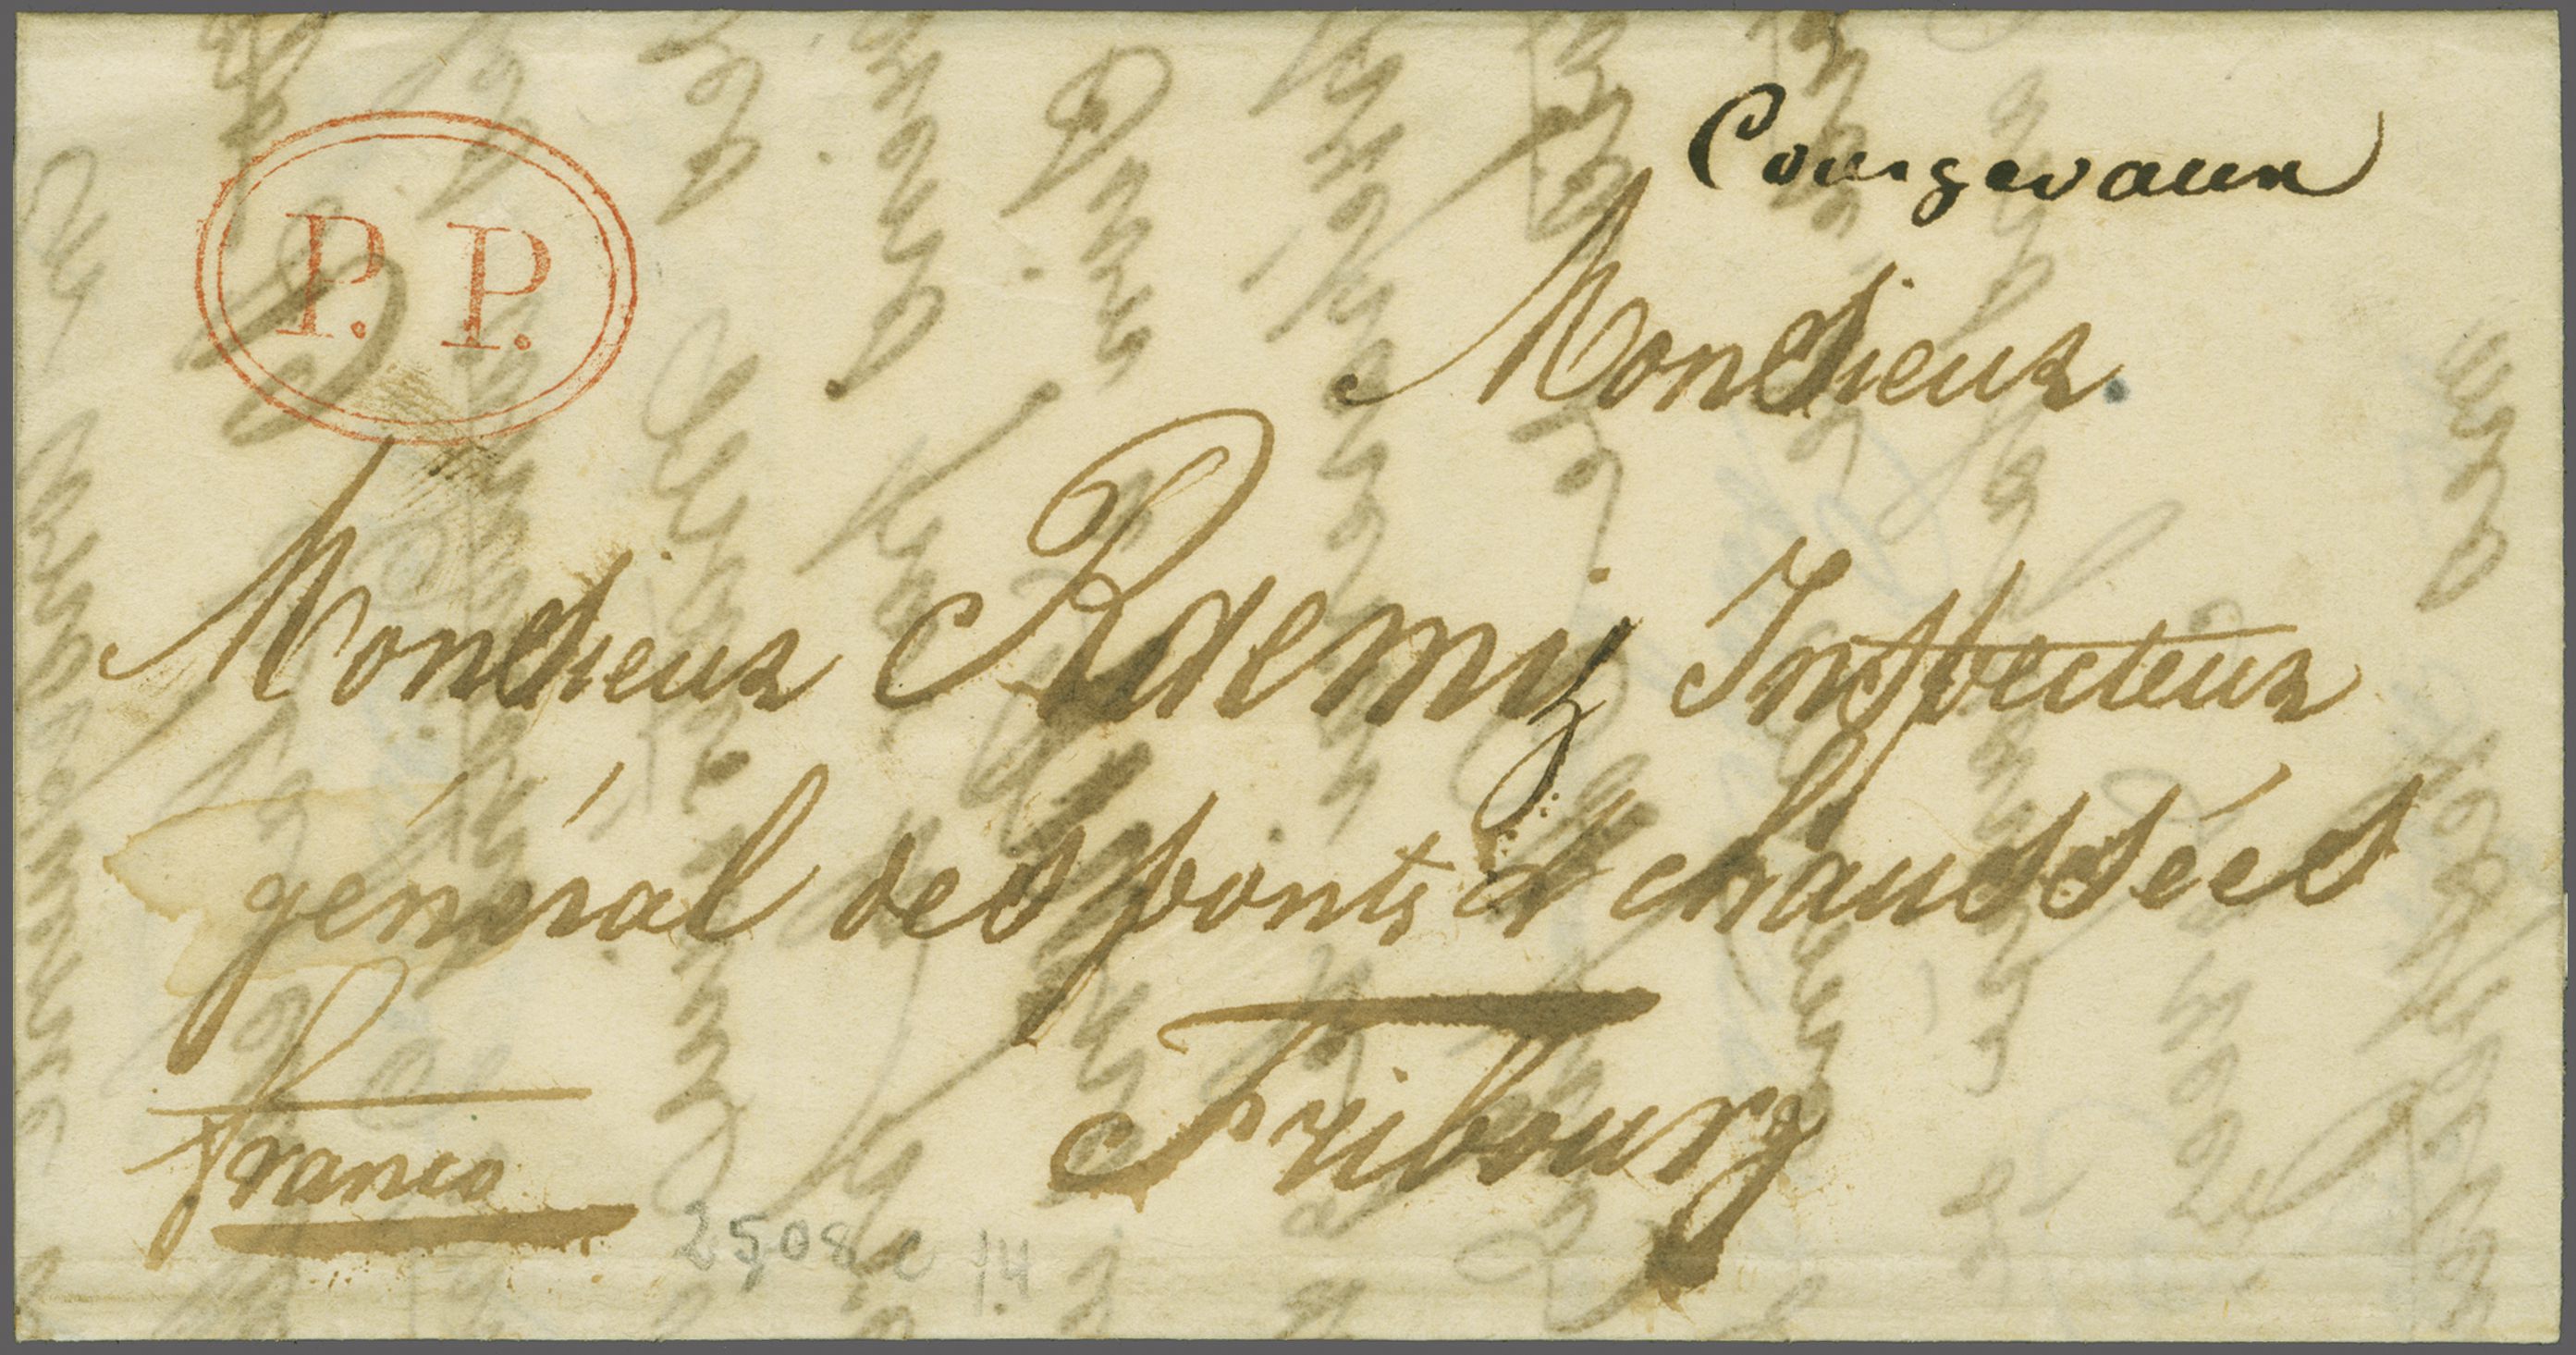 Courgevaux
P. P.
Monsieur
Monsieur Raemy Inspecteur
général des ponts & chaussées
Fribourg
Franco
2508 c 14